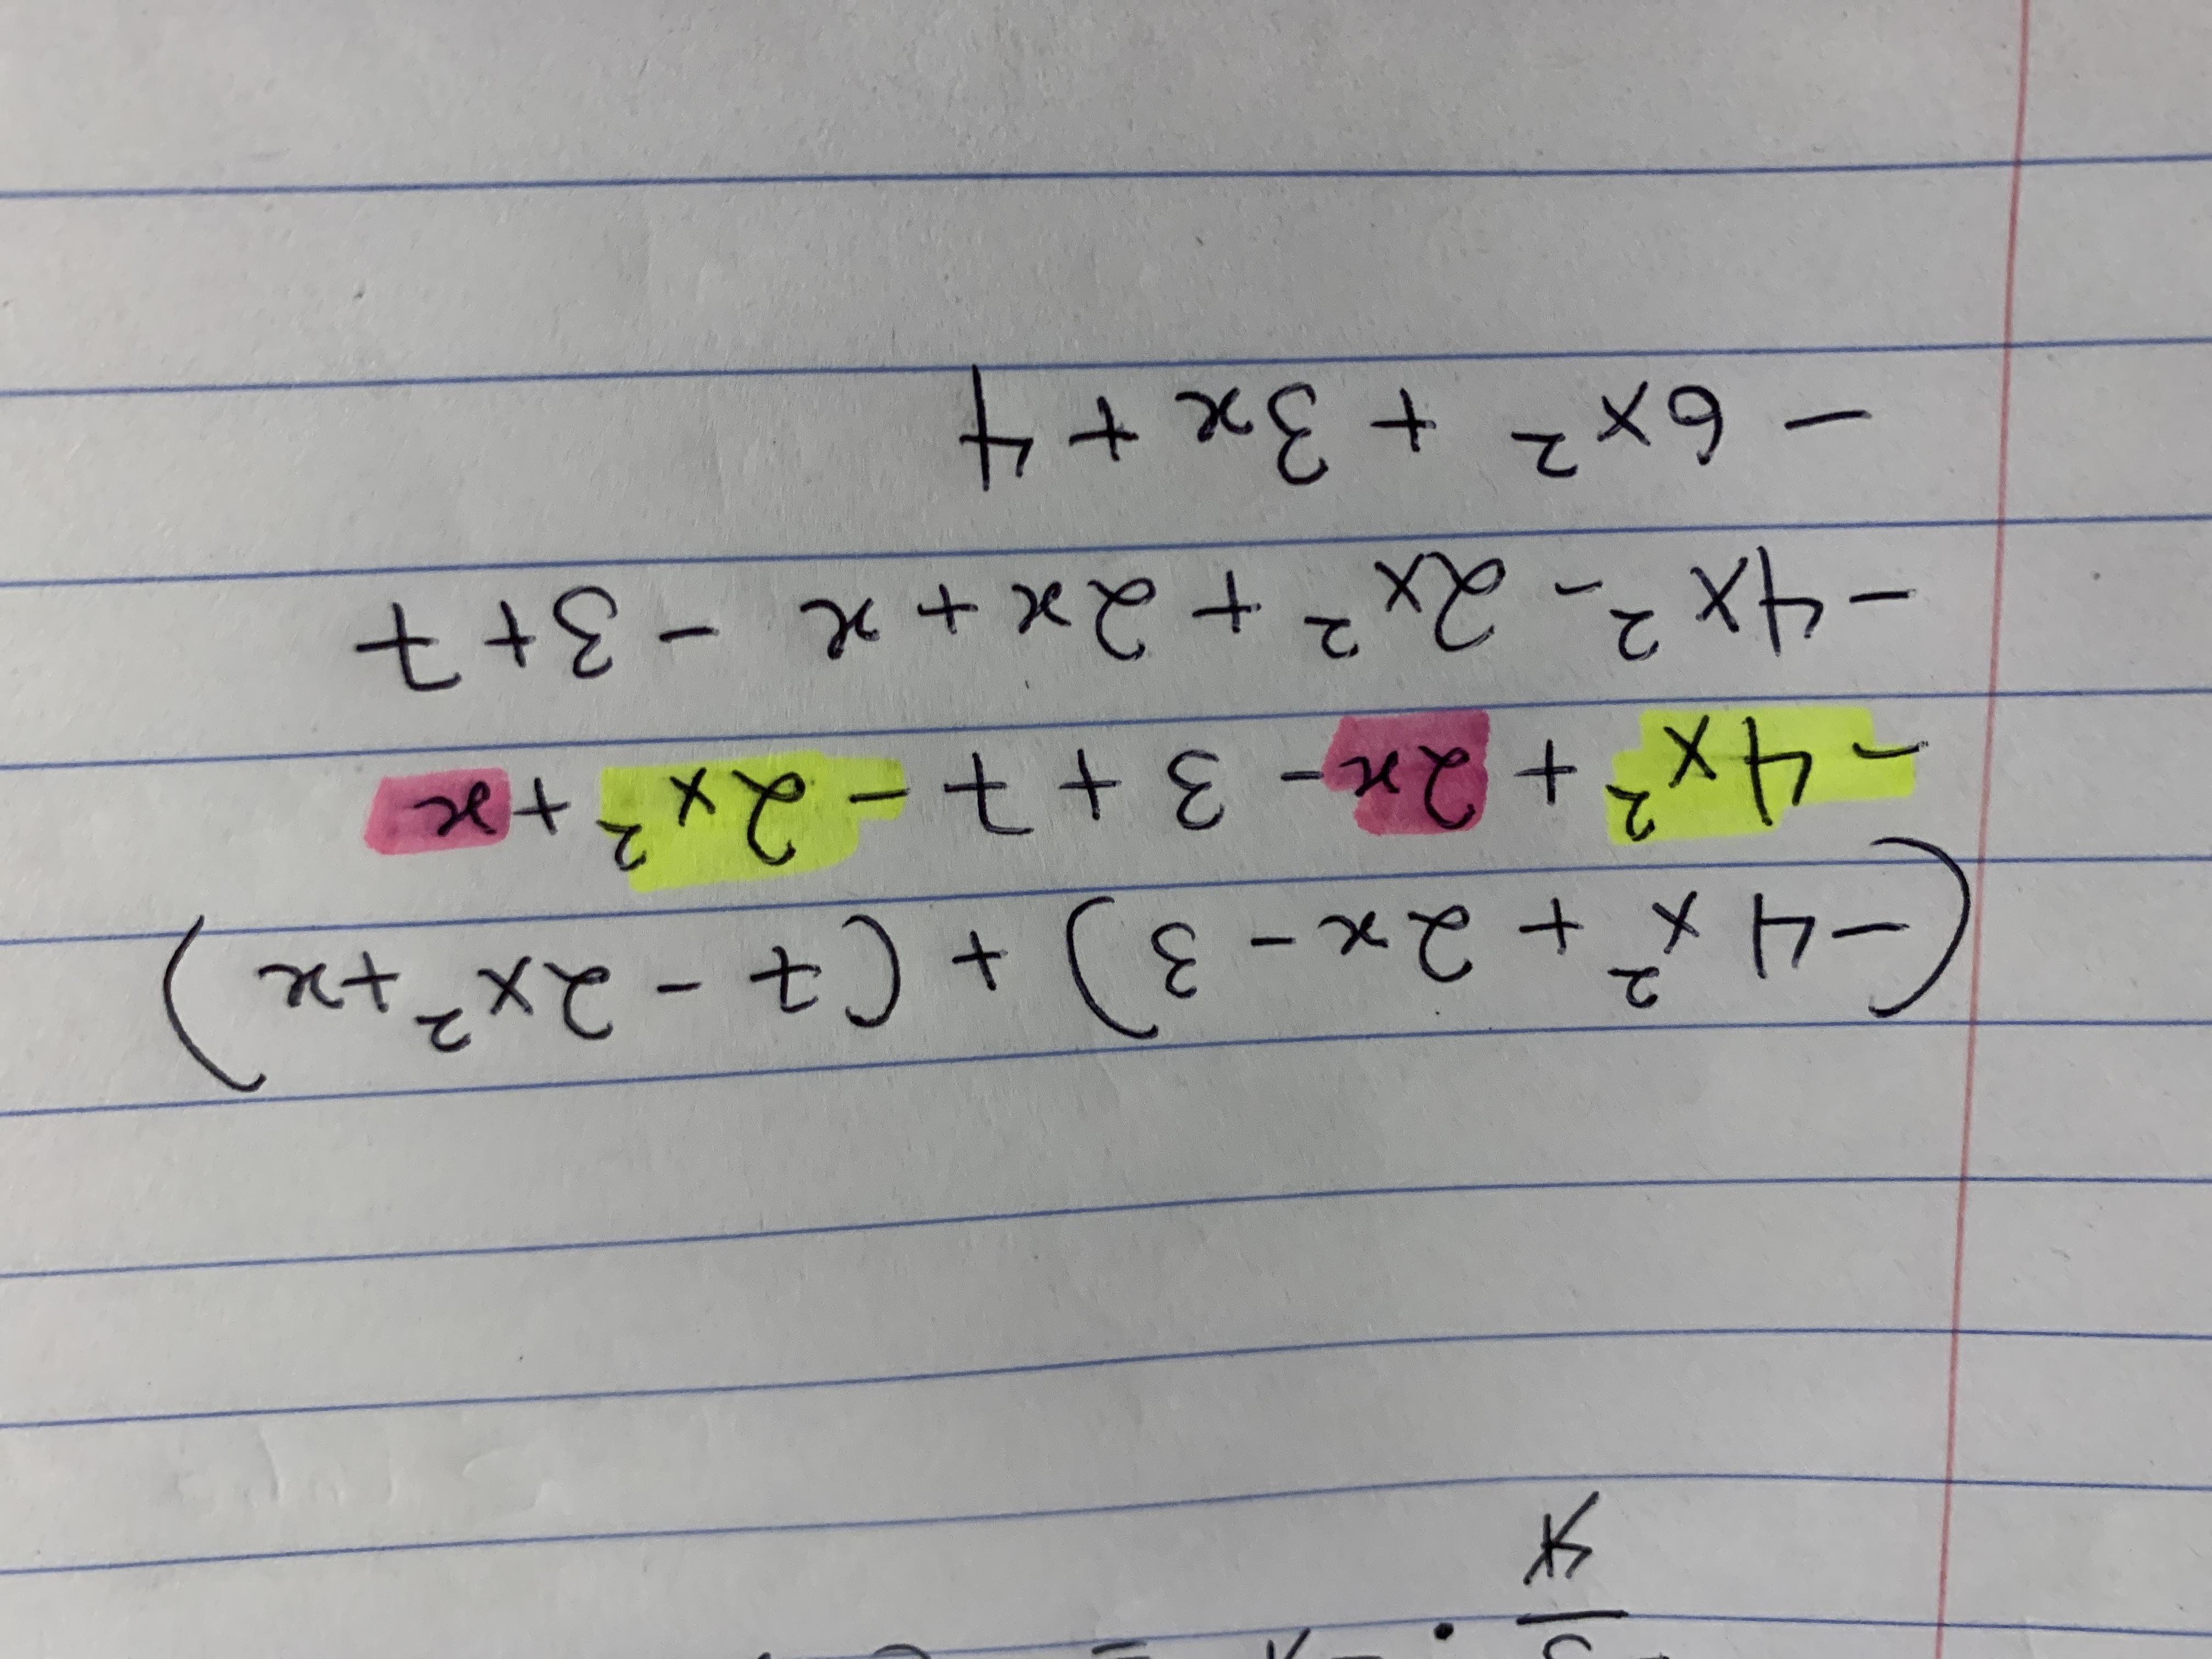 (-4x² + 2x - 3) + (7 - 2x² + x)
-4x² + 2x - 3 + 7 - 2x² + x
-4x² - 2x² + 2x + x - 3 + 7
- 6x² + 3x + 4